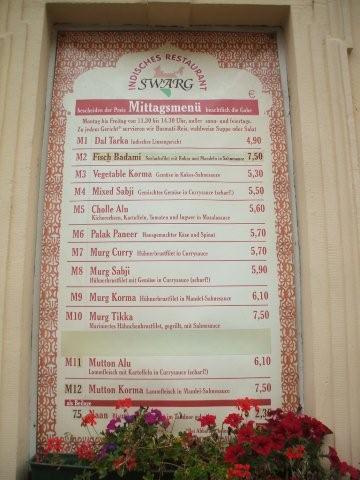 INDISCHES RESTAURANT
SWARG
€
bescheiden der Preis Mittagsmenü beachtlich die Gabe
Montag bis Freitag von 11.30 bis 14.30 Uhr, außer sonn- und feiertags.
Zu jedem Gericht* servieren wir Basmati-Reis, wahlweise Suppe oder Salat
M1 Dal Tarka Indisches Linsengericht 4,90
M2 Fisch Badami Seelachsfilet mit Kokos und Mandeln in Sahnesauce 7,50
M3 Vegetable Korma Gemüse in Kokos-Sahnesauce 5,30
M4 Mixed Sabji Gemischtes Gemüse in Currysauce (scharf!) 5,50
M5 Cholle Alu 5,60
Kichererbsen, Kartoffeln, Tomaten und Ingwer in Masalasauce
M6 Palak Paneer Hausgemachter Käse und Spinat 5,70
M7 Murg Curry Hühnerbrustfilet in Currysauce 5,70
M8 Murg Sabji 5,90
Hühnerbrustfilet mit Gemüse in Currysauce (scharf!)
M9 Murg Korma Hühnerbrustfilet in Mandel-Sahnesauce 6,10
M10 Murg Tikka 7,50
Mariniertes Hähnchenbrustfilet, gegrillt, mit Sahnesauce
M11 Mutton Alu 6,10
Lammfleisch mit Kartoffeln in Currysauce (scharf!)
M12 Mutton Korma Lammfleisch in Mandel-Sahnesauce 7,50
als Beilage
75 Naan im Tandoor 2,30